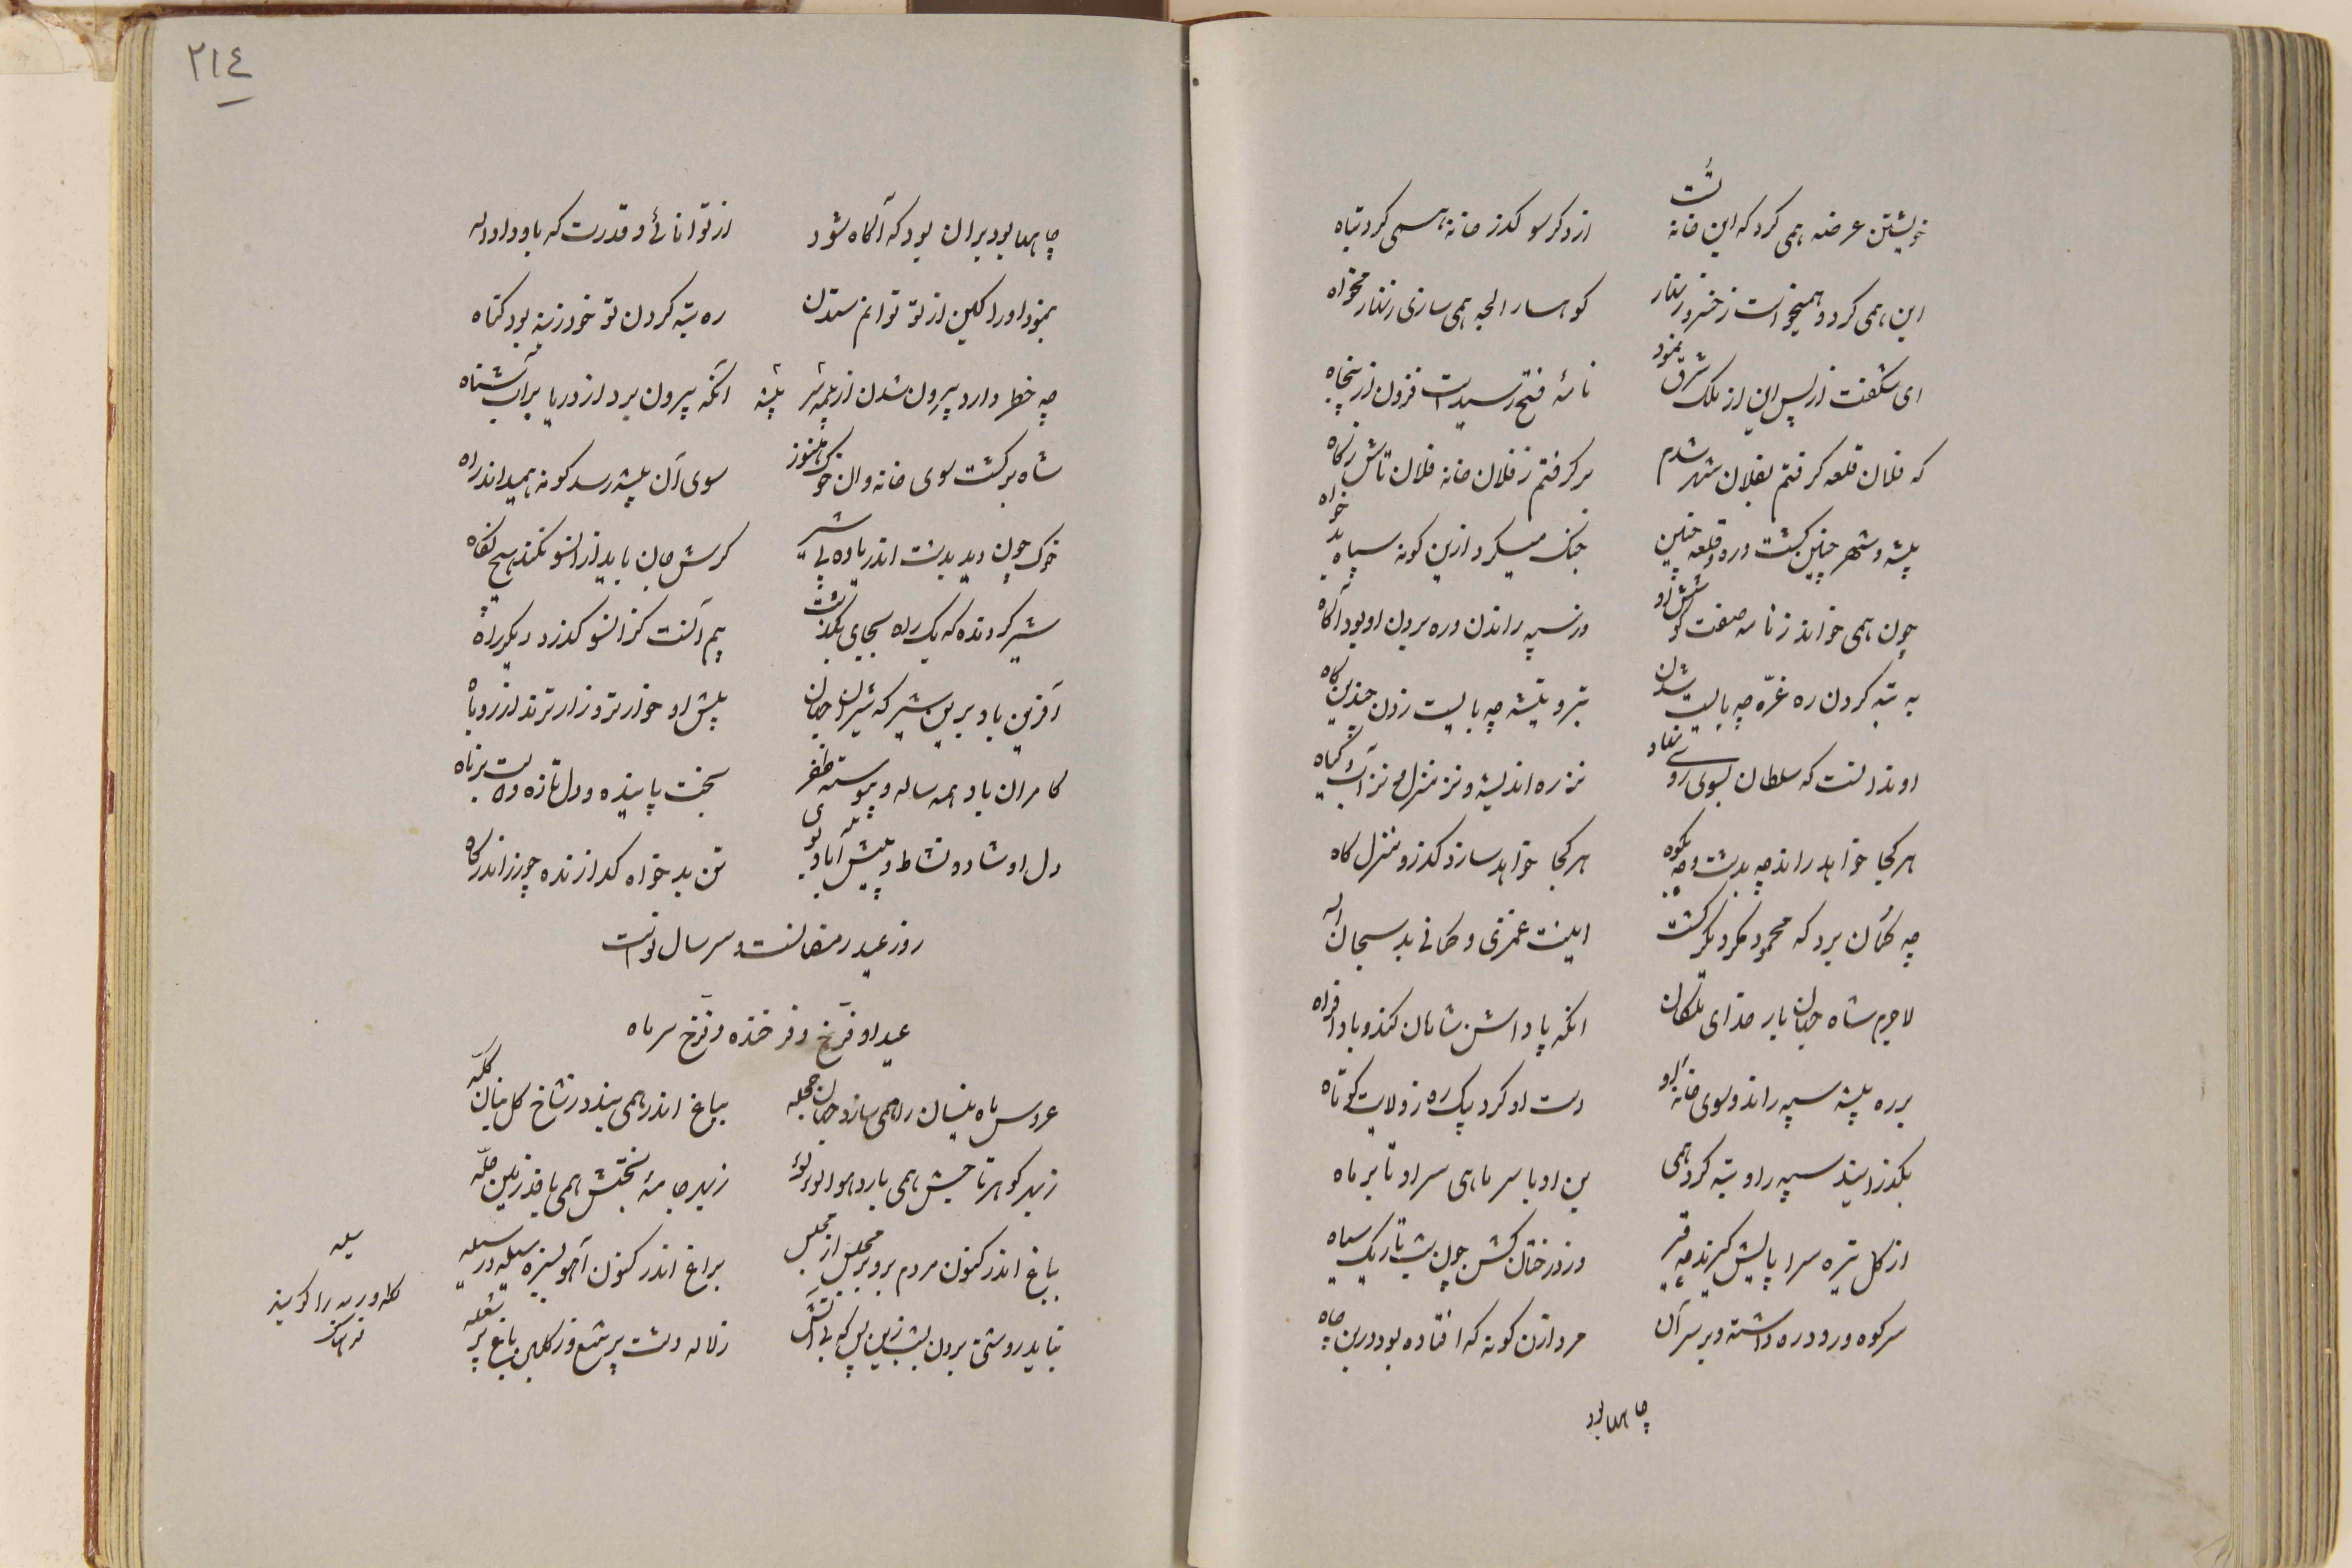 خویشتن عرضه همی کرد که این خانه تست از دگر سو گذر خانه همی کرد تباه
این همی کرد و همیخواست ز خسرو زنهار کوهسار الجه همی سازی زنهار مخواه
ای شگفت از پس این از ملک شرق نمود نامهٔ فتح رسیدست فزون از پنجاه
که فلان قلعه گرفتم بفلان شهر شدم بر گرفتم ز فلان خانه فلان
بیشه و شهر چنین گشت و ره و قلعه چنین جنگ میکرد ازین گونه سپاه بدخواه
چون همی خواند ز نامه صفت کوشش او وز سپه راندن و ره بردن او بود آگاه
به تبه کردن ره غرّه چه بایست شدن تبر و تیشه چه بایست زدن چندین گاه
او ندانست که سلطان بسوی روی نهاد نز ره اندیشه و نز منزل و نز آب و گیاه
هر کجا خواهد راند چه بدشت و چه بکوه هر کجا خواهد سازد گذر و منزلگاه
چه گمان برد که محمود مگر دیگر گشت اینت عمری و گمانی بد سبحان اله
لاجرم شاه جهان بار خدای ملکان انکه پاداشن شاهان کند و باد افراه
بر ره بیشه سپه راند و سوی خانهٔ او دست او کرد بیک ره ز ولایت کوتاه
بگذرانید سپه را و تبه کرد همی بن او با سر ماهی سر او تا بر ماه
از گل تیره سراپایش گیرنده چو قیر وز درختان گشن چون شب تاریک سیاه
سر کوه و رود دره داشته و بر سر آن مرد ازن گونه که افتاده بود در بن چاه
چاهها بود
٢١٤
چاهها بود بر ان بود که آگاه شود از توانائی و قدرت که باو داد اله
بنمود او را لکین از تو توانم ستدن ره تبه کردن تو خود ز بنه بود گناه
چه خطر دارد بیرون شدن از بیشه بیشه انکه بیرون برد از دریا بر آب شناه
شاه برگشت سوی خانه و ان خوک هنوز سوی آن بیشه رسد گونه همید اندر راه
خوک چون دید بدشت اندر یاوه پی شیر گرش جان باید زانسو نکند هیچ نگاه
شیر گرونده که یک راه بجایی بگذشت بیم آنست کزانسو گذرد دیگر راه
آفرین باد برین شیر که شیران جهان پیش او خوارتر و زارترند از روباه
کامران باد همه ساله و پیوسته ظفر بخت پاینده و دل تازه و دولت برناه
دل او شاد و نشاط و پیش آباد بوی تن بدخواه گدازنده چو زر اندر گاه
روز عید رمضانست و سر سال نوست
عید او فرّخ و فرخنده و فرّخ سر ماه
عروس ماه نیسان را همی سازد جهان حجله بباغ اندر همی بندد ز شاخ گلبنان کلّه
ز بهر گوهر تاجش همی بارد هوا لولو ز بهر جامهٔ تختش همی بافد زمین حلّه
بباغ اندر کنون مردم برد مجلس از مجلس براغ اندر کنون آهو نبرد سیله در سیله
نباید روشنی بردن بشب زین پس که بی آتش ز لاله دشت پر شمع و ز گلبن باغ پر شعله
سیله
گله و رمه را گویند
فرهنگ